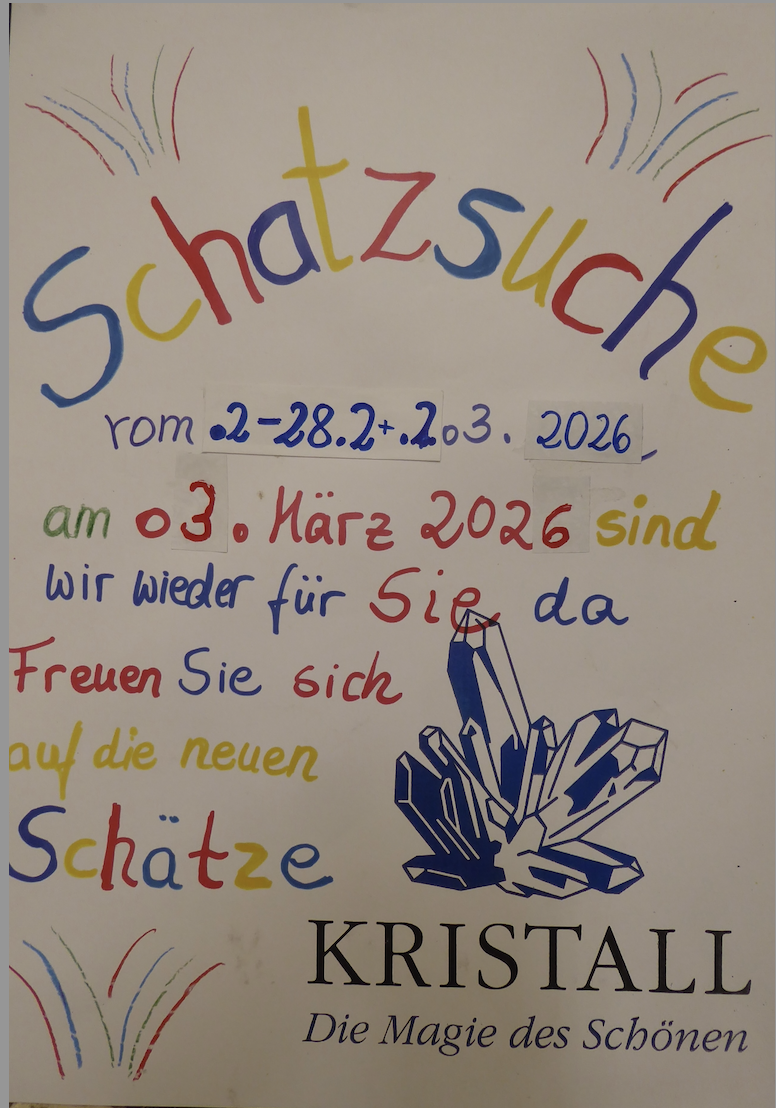 Schatzsuche
vom .2-28.2+.2.03. 2026
am 03. März 2026 sind
wir wieder für Sie da
Freuen Sie sich
auf die neuen
Schätze
KRISTALL
Die Magie des Schönen